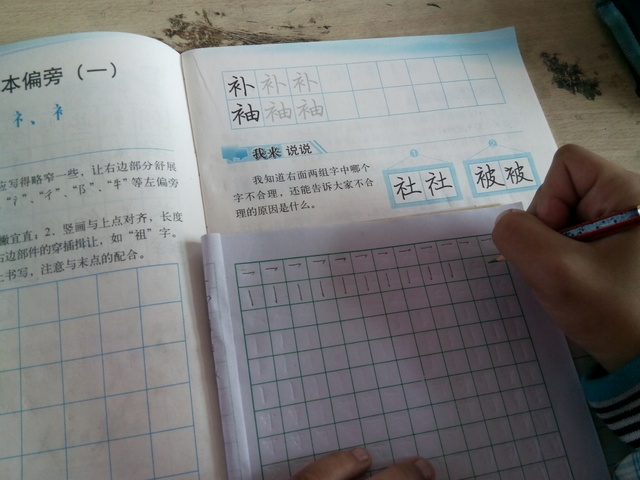 本偏旁（一）
礻、衤
应写得略窄一些，让右边部分舒展
等左偏旁
宜直；2．竖画与上点对齐，长度
右边部件的穿插揖让，如“祖”字。
书写，注意与末点的配合。
补 补 补
袖 袖 袖
我来 说说
我知道右面两组字中哪个
字不合理，还能告诉大家不合
理的原因是什么。
1
社 社
2
被 被